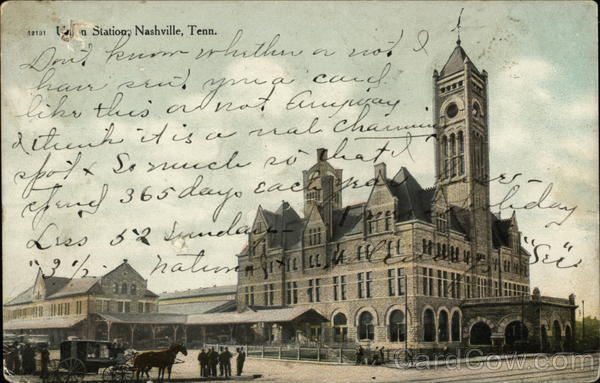 12131 Union Station, Nashville, Tenn.
Don't know whether or not I
have sent you a card
like this or not Anyway
I think it is a real charming
spot & So much so that I
spend 365 days each year
Less 52 Sundays
National holiday
"See".
CardCow.com